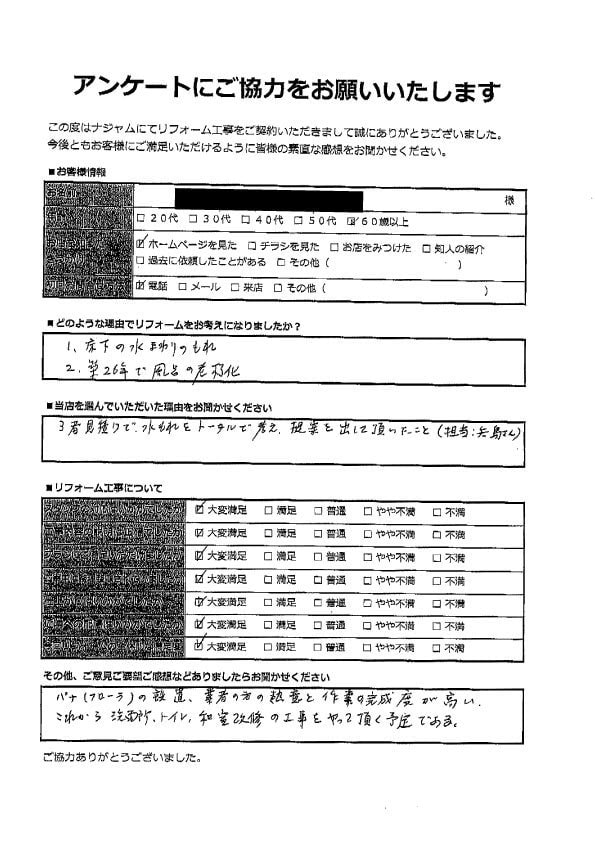 アンケートにご協力をお願いいたします
この度はナジャムにてリフォーム工事をご契約いただきまして誠にありがとうございました。
今後ともお客様にご満足いただけるように皆様の素直な感想をお聞かせください。
■お客様情報
様
□20代 □30代 □40代 □50代 ☑60歳以上
☑ホームページを見た □チラシを見た □お店をみつけた □知人の紹介
□過去に依頼したことがある □その他( )
☑電話 □メール □来店 □その他( )
■どのような理由でリフォームをお考えになりましたか？
1、床下の水まわりのもれ
2、築26年で風呂の老朽化
■当店を選んでいただいた理由をお聞かせください
3者見積りで、水もれをトータルで考え、提案を出して頂いたこと(担当:兵島さん)
■リフォーム工事について
☑大変満足 □満足 □普通 □やや不満 □不満
☑大変満足 □満足 □普通 □やや不満 □不満
☑大変満足 □満足 □普通 □やや不満 □不満
☑大変満足 □満足 □普通 □やや不満 □不満
☑大変満足 □満足 □普通 □やや不満 □不満
☑大変満足 □満足 □普通 □やや不満 □不満
☑大変満足 □満足 □普通 □やや不満 □不満
その他、ご意見ご要望ご感想などありましたらお聞かせください
パナ(フローラ)の設置、業者の方の熱意と作業の完成度が高い。
これから洗面所、トイレ、和室改修の工事をやって頂く予定である。
ご協力ありがとうございました。